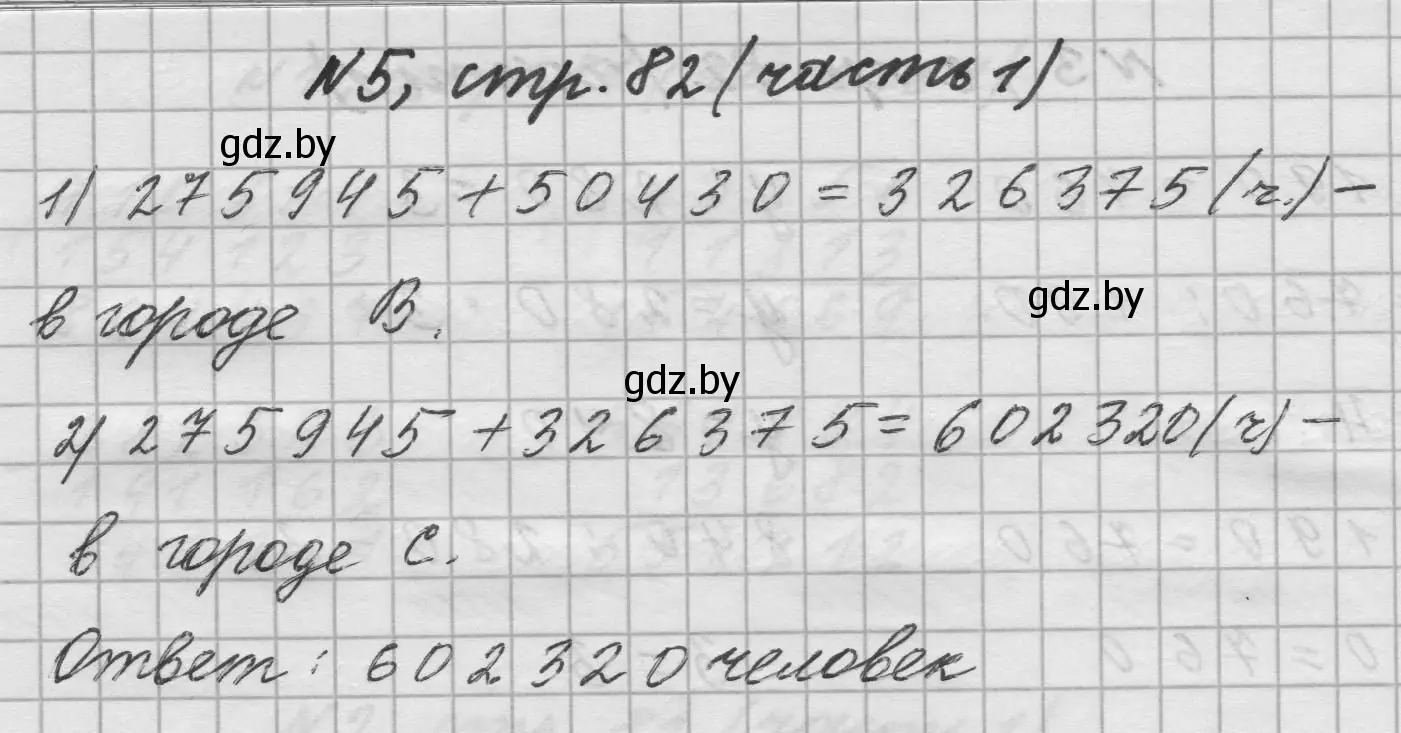 N5, стр. 82 (часть 1)
gdz.by
1) 275945 + 50430 = 326375 (ч.) –
в городе В.
gdz.by
gdz.by
2) 275945 + 326375 = 602320 (ч) –
в городе С.
Ответ: 602320 человек